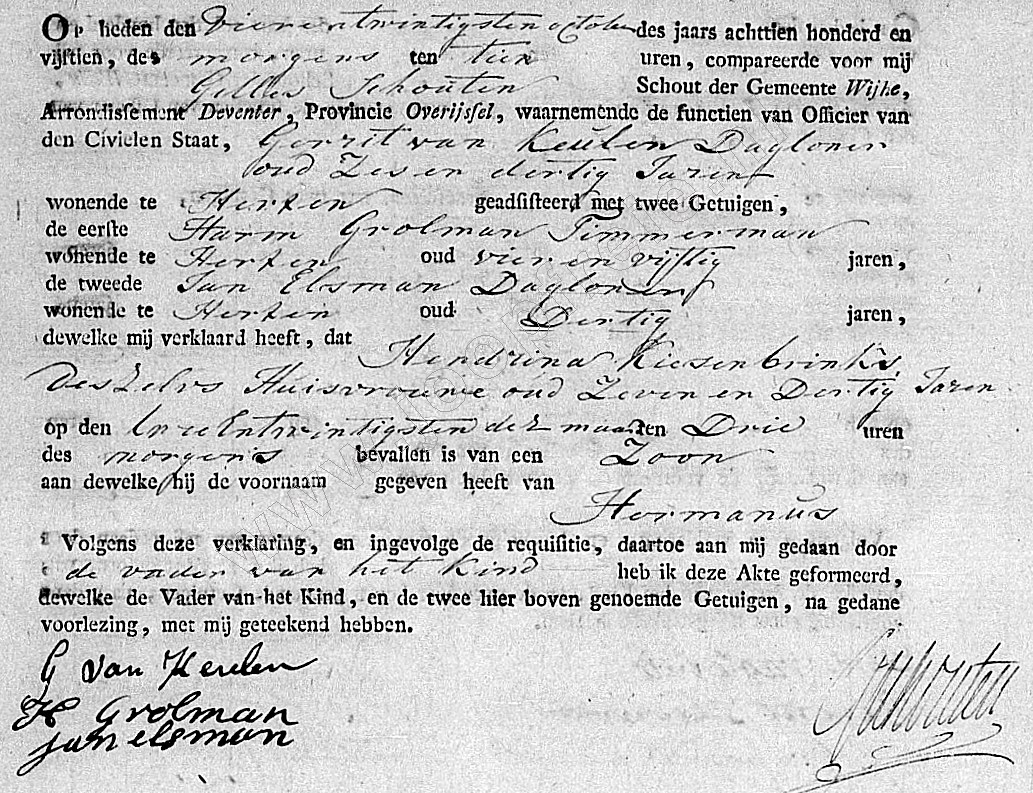 Op heden den Vierentwintigsten october des jaars achttien honderd en
vijftien, des morgens ten tien uren, compareerde voor mij
Gilles Schouten Schout der Gemeente Wijhe,
Arrondissement Deventer, Provincie Overijssel, waarnemende de functien van Officier van
den Civielen Staat, Gerrit van Keulen Dagloner
oud Zes en dertig Jaren
wonende te Herxen geadsisteerd met twee Getuigen,
de eerste Harm Grolman Timmerman
wonende te Herxen oud vier en vijftig jaren,
de tweede Jan Elsman Dagloner
wonende te Herxen oud Dertig jaren,
dewelke mij verklaard heeft, dat Hendrina Kiesenbrinks,
Deszelvs Huisvrouwe oud Zeven en Dertig Jaren
op den Drie Entwintigsten dez maand ten Drie uren
des morgens bevallen is van een Zoon
aan dewelke hij de voornaam gegeven heeft van
Hermanus
Volgens deze verklaring, en ingevolge de requisitie, daartoe aan mij gedaan door
de vader van het Kind heb ik deze Akte geformeerd,
dewelke de Vader van het Kind, en de twee hier boven genoemde Getuigen, na gedane
voorlezing, met mij geteekend hebben.
G van Keulen
H Grolman
jan elsman
Schouten